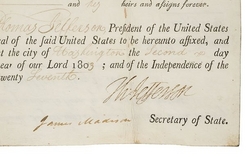 and his heirs and assigns forever.
Thomas Jefferson, President of the United States
al of the said United States to be hereunto affixed, and
t the city of Washington the Second day
ear of our Lord 1803; and of the Independence of the
wenty Seventh.
Th: Jefferson
James Madison Secretary of State.